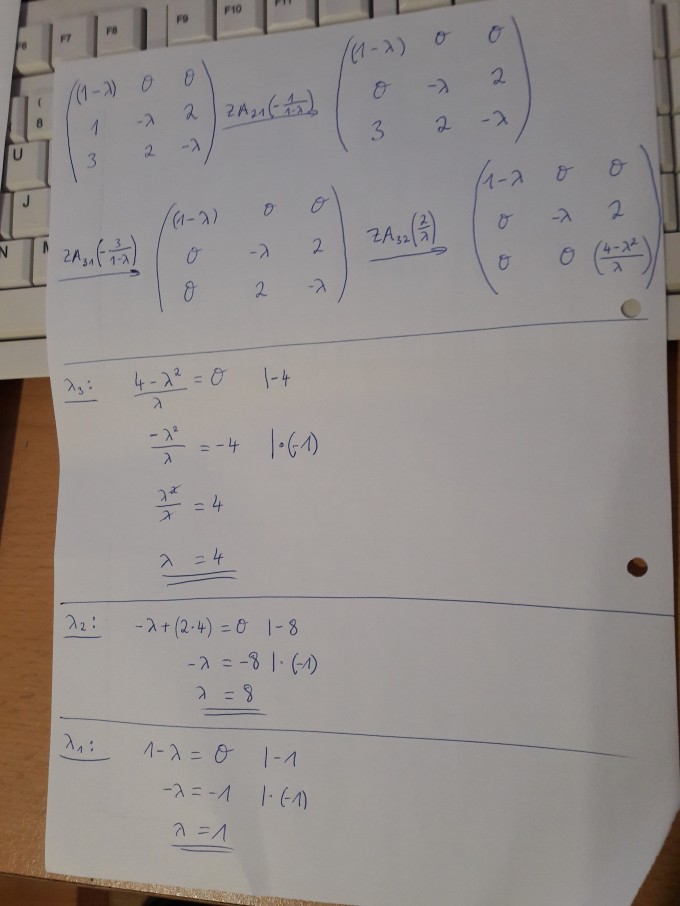 F6 F7 F8 F9 F10 F11
( 8
U
J
N
(1-λ) 0 0
1 -λ 2
3 2 -λ
ZA₂₁(-1/(1-λ))
(1-λ) 0 0
0 -λ 2
3 2 -λ
ZA₃₁(-3/(1-λ))
(1-λ) 0 0
0 -λ 2
0 2 -λ
ZA₃₂(2/λ)
1-λ 0 0
0 -λ 2
0 0 ((4-λ²)/λ)
λ₃: (4-λ²)/λ = 0 |-4
-λ²/λ = -4 |·(-1)
λ²/λ = 4
λ = 4
λ₂: -λ+(2·4) = 0 |-8
-λ = -8 |·(-1)
λ = 8
λ₁: 1-λ = 0 |-1
-λ = -1 |·(-1)
λ = 1